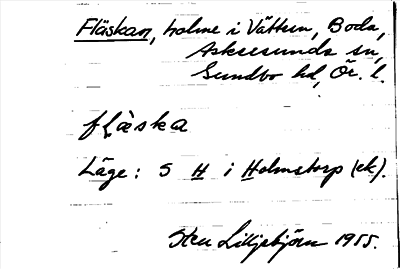 Fläskan, holme i Vättern, Boda,
Askersunds sn,
Sundbo hd, Ör. l.
flæska
Läge: S H i Holmstorp (ek).
Sten Lilljebjörn 1955.